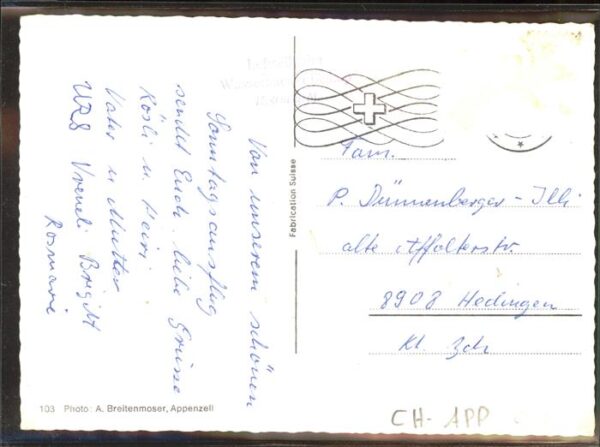 Von unserem schönen
Sonntagsausflug
sendet Euch liebe Grüsse
Rösli u. Heiri
Vater u Mutter
Urs Vreneli Brigitt
Rosmarie
Fabrication Suisse
Fam.
P. Dünnenberger - Illi
alte Affolterstr.
8908 Hedingen
Kt. Zch
103 Photo: A. Breitenmoser, Appenzell
CH-APP